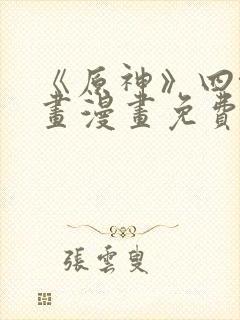 《原神》四
畫漫畫免費
張雲叟